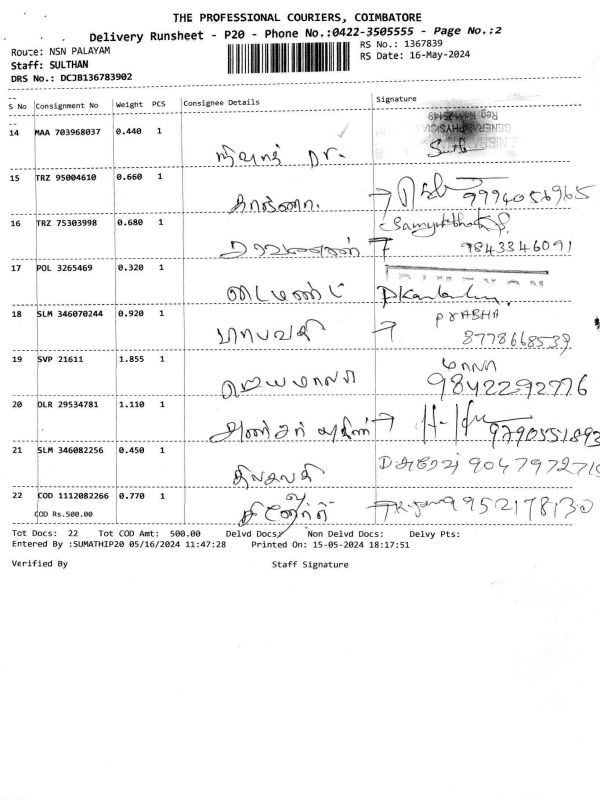 THE PROFESSIONAL COURIERS, COIMBATORE
Delivery Runsheet - P20 - Phone No.:0422-3505555 - Page No.:2
Route: NSN PALAYAM
RS No.: 1367839
Staff: SULTHAN
RS Date: 16-May-2024
DRS No.: DCJB136783902
S No Consignment No Weight PCS Consignee Details Signature
14 MAA 703968037 0.440 1
Dr.
15 TRZ 95004610 0.660 1
9994056965
16 TRZ 75303998 0.680 1
9843346091
17 POL 3265469 0.320 1
டைமண்ட்
18 SLM 346070244 0.920 1
PrABHA
8778668539
19 SVP 21611 1.855 1
ஜெயமாலா
மாலா
9842292776
20 DLR 29534781 1.110 1
9790551893
21 SLM 346082256 0.450 1
திலகவதி
22 COD 1112082266 0.770 1
9952178130
COD Rs.500.00
Tot Docs: 22 Tot COD Amt: 500.00 Delvd Docs: Non Delvd Docs: Delvy Pts:
Entered By :SUMATHIP20 05/16/2024 11:47:28 Printed On: 15-05-2024 18:17:51
Verified By Staff Signature